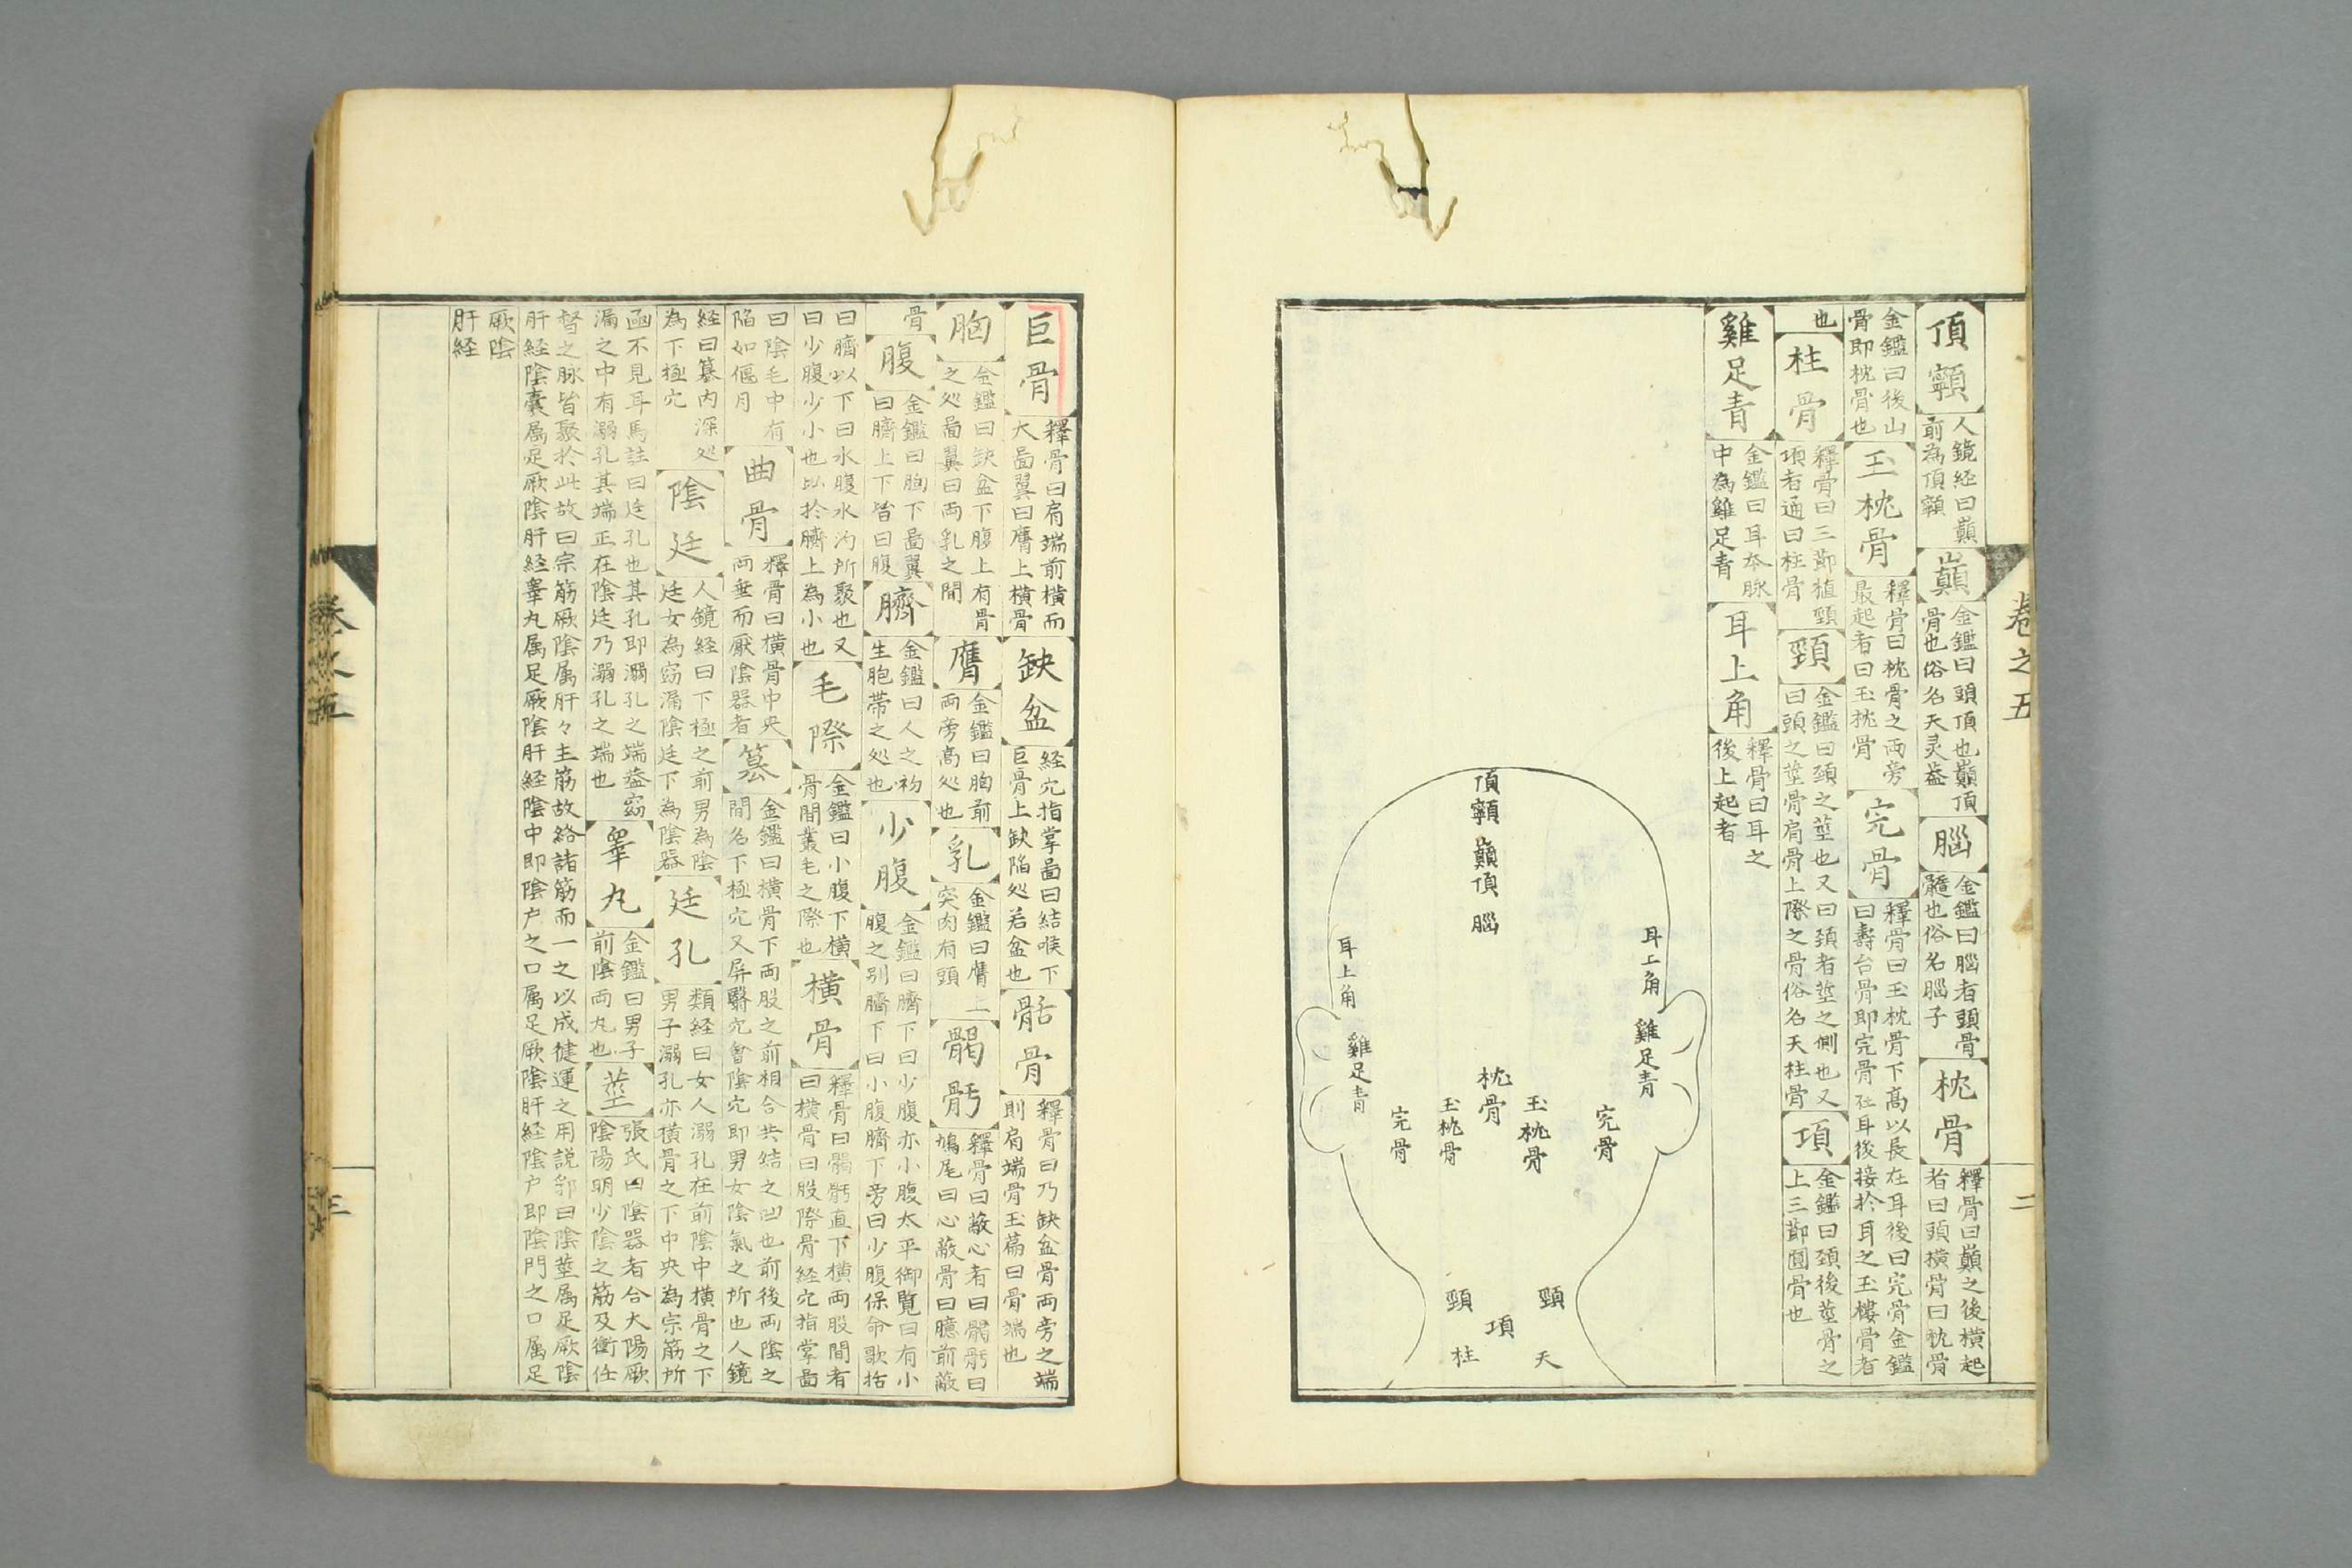 卷之五
二
頂𩕳
人鏡経曰巔
前為頂𩕳
巔
金鑑曰頭頂也巔頂
骨也俗名天灵葢
腦
金鑑曰腦者頭骨
髓也俗名腦子
枕骨
釋骨曰巔之後橫起
者曰頭橫骨曰枕骨
金鑑曰後山
骨即枕骨也
玉枕骨
釋骨曰枕骨之両旁
最起者曰玉枕骨
完骨
釋骨曰玉枕骨下高以長在耳後曰完骨金鑑
曰壽台骨即完骨在耳後接於耳之玉樓骨者
也
柱骨
釋骨曰三節植頸
項者通曰柱骨
頸
金鑑曰頸之莖也又曰頸者莖之側也又
曰頭之莖骨肩骨上際之骨俗名天柱骨
項
金鑑曰頸後莖骨之
上三節圓骨也
雞足青
金鑑曰耳本脉
中為雞足青
耳上角
釋骨曰耳之
後上起者
頂𩕳
巔頂
腦
耳上角
雞足青
完骨
玉枕骨
枕骨
玉枕骨
完骨
耳上角
雞足青
頸
項
頸
天
柱
巨骨
釋骨曰肩端前橫而
大啚翼曰膺上橫骨
缺盆
経穴指掌啚曰結喉下
巨骨上缺陷処若盆也
骷骨
釋骨曰乃缺盆骨両旁之端
則肩端骨玉篇曰骨端也
胸
金鑑曰缺盆下腹上有骨
之処啚翼曰両乳之間
膺
金鑑曰胸前
両旁高処也
乳
金鑑曰膺上
突肉有頭
𩩲骬
釋骨曰蔽心者曰𩩲骬曰
鳩尾曰心蔽骨曰臆前蔽
骨
腹
金鑑曰胸下啚翼
曰臍上下皆曰腹
臍
金鑑曰人之初
生胞帯之処也
少腹
金鑑曰臍下曰少腹亦小腹太平御覧曰有小
腹之别臍下曰小腹臍下旁曰少腹保命歌括
曰臍以下曰水腹水汋所聚也又
曰少腹少小也比於臍上為小也
毛際
金鑑曰小腹下橫
骨間叢毛之際也
橫骨
釋骨曰𩩲骬直下橫両股間者
曰橫骨曰股際骨経穴指掌啚
曰陰毛中有
陷如偃月
曲骨
釋骨曰橫骨中央
両垂而厭陰器者
篡
金鑑曰橫骨下両股之前相合共結之凹也前後両陰之
間名下極穴又屏翳穴會陰穴即男女陰氣之所也人鏡
経曰篡内深処
為下極穴
陰廷
人鏡経曰下極之前男為陰
廷女為窈漏陰廷下為陰器
廷孔
類経曰女人溺孔在前陰中橫骨之下
男子溺孔亦橫骨之下中央為宗筋所
凾不見耳馬註曰廷孔也其孔即溺孔之端葢窈
漏之中有溺孔其端正在陰廷乃溺孔之端也
睾丸
金鑑曰男子
前陰両丸也
莖
張氏曰陰器者合太陽厥
陰陽明少陰之筋及衝任
督之脉皆聚於此故曰宗筋厥陰属肝々主筋故絡諸筋而一之以成健運之用説郛曰陰莖属足厥陰
肝経陰囊属足厥陰肝経睾丸属足厥陰肝経陰中即陰户之口属足厥陰肝経陰户即陰門之口属足
厥陰
肝経
卷之五
三